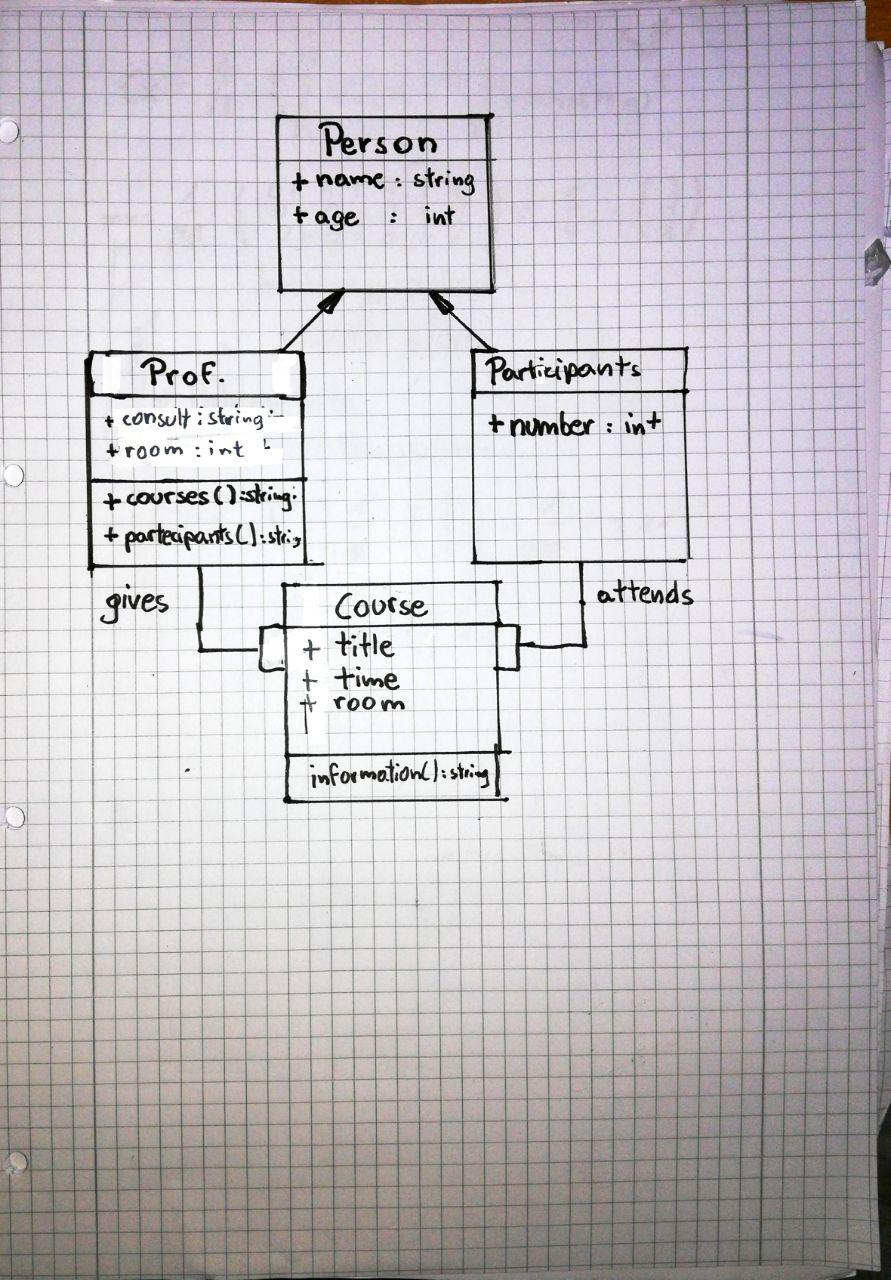 Person
+ name : string
+ age : int
Prof.
+ consult : string
+ room : int
+ courses() : string
+ partecipants() : strin
Participants
+ number : int
gives
attends
Course
+ title
+ time
+ room
information() : string